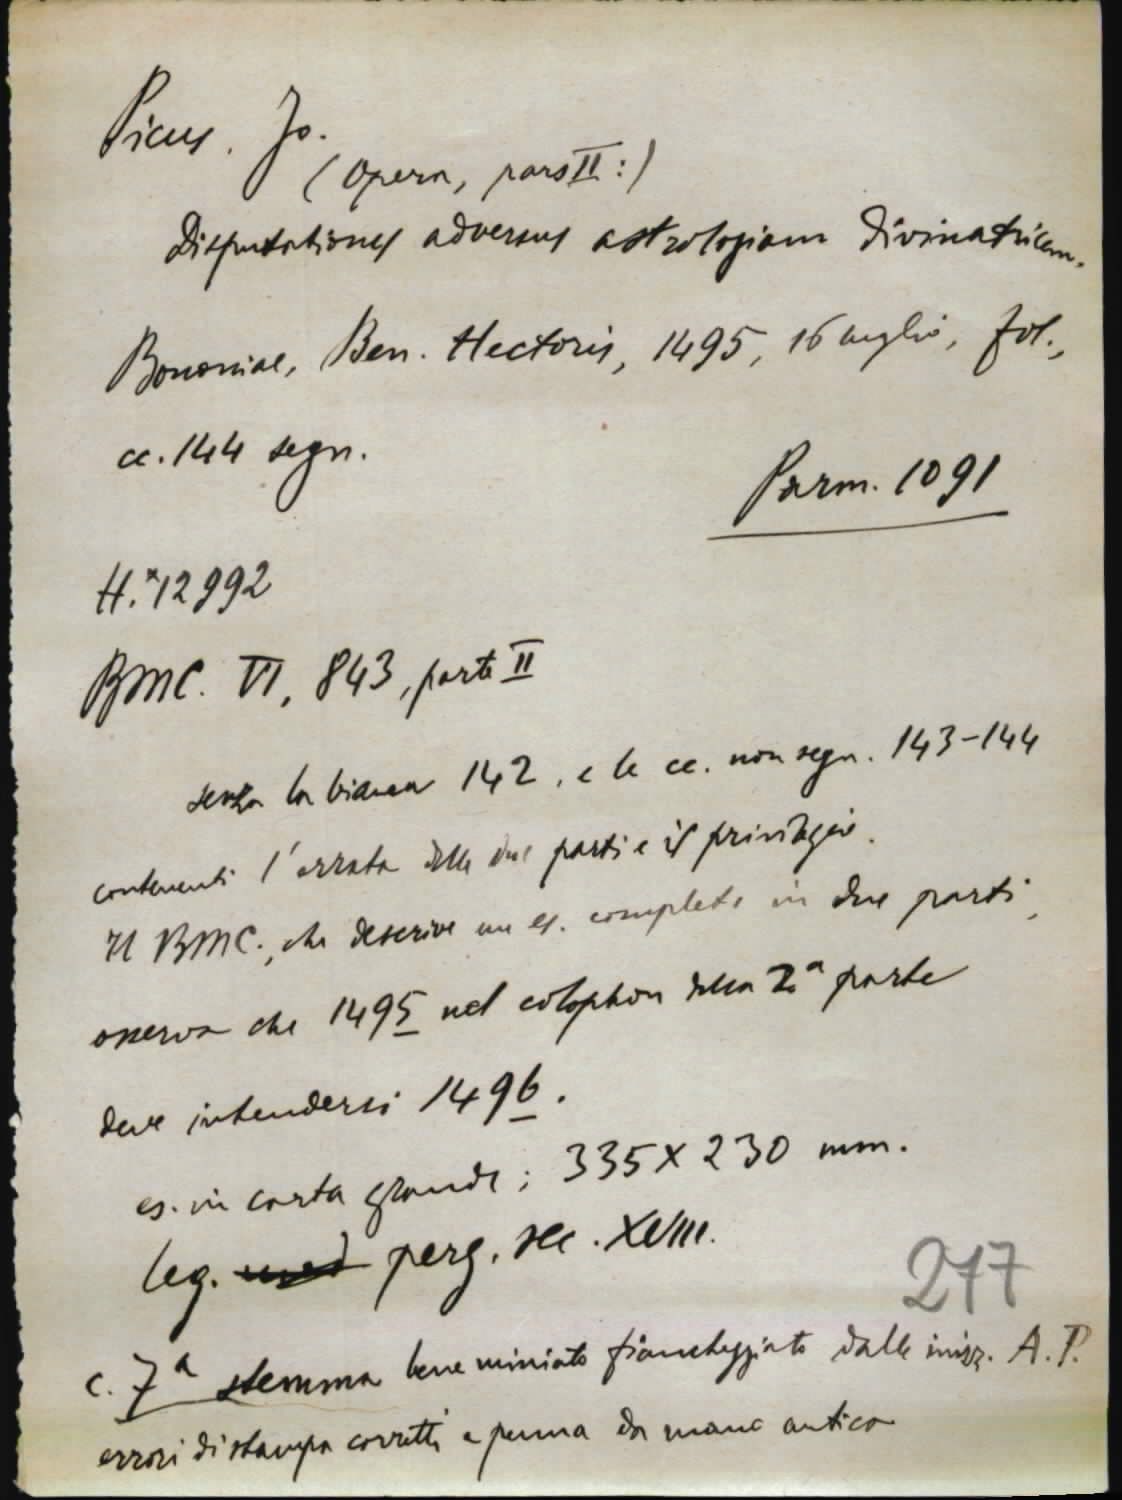 Picus, Jo.
(Opera, pars II:)
Disputationes adversus astrologiam divinatricem.
Bononiae, Ben. Hectoris, 1495, 16 luglio, fol.,
cc. 144 segn.
Parm. 1091
H.*12992
BMC. VI, 843, parte II
senza la bianca 142, e le cc. non segn. 143-144
contenenti l'errata delle due parti e il privilegio.
Il BMC., che descrive un es. completo in due parti,
osserva che 1495 nel colophon della 2ª parte
deve intendersi 1496.
es. in carta grande; 335 x 230 mm.
leg. perg. sec. XVIII.
217
c. 7ª stemma bene miniato fiancheggiato dalle iniz. A. P.
errori di stampa corretti a penna da mano antica